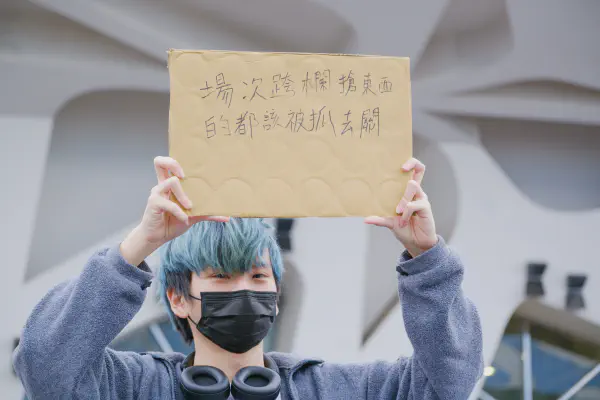 場次跨欄搶東西
的都該被抓去關